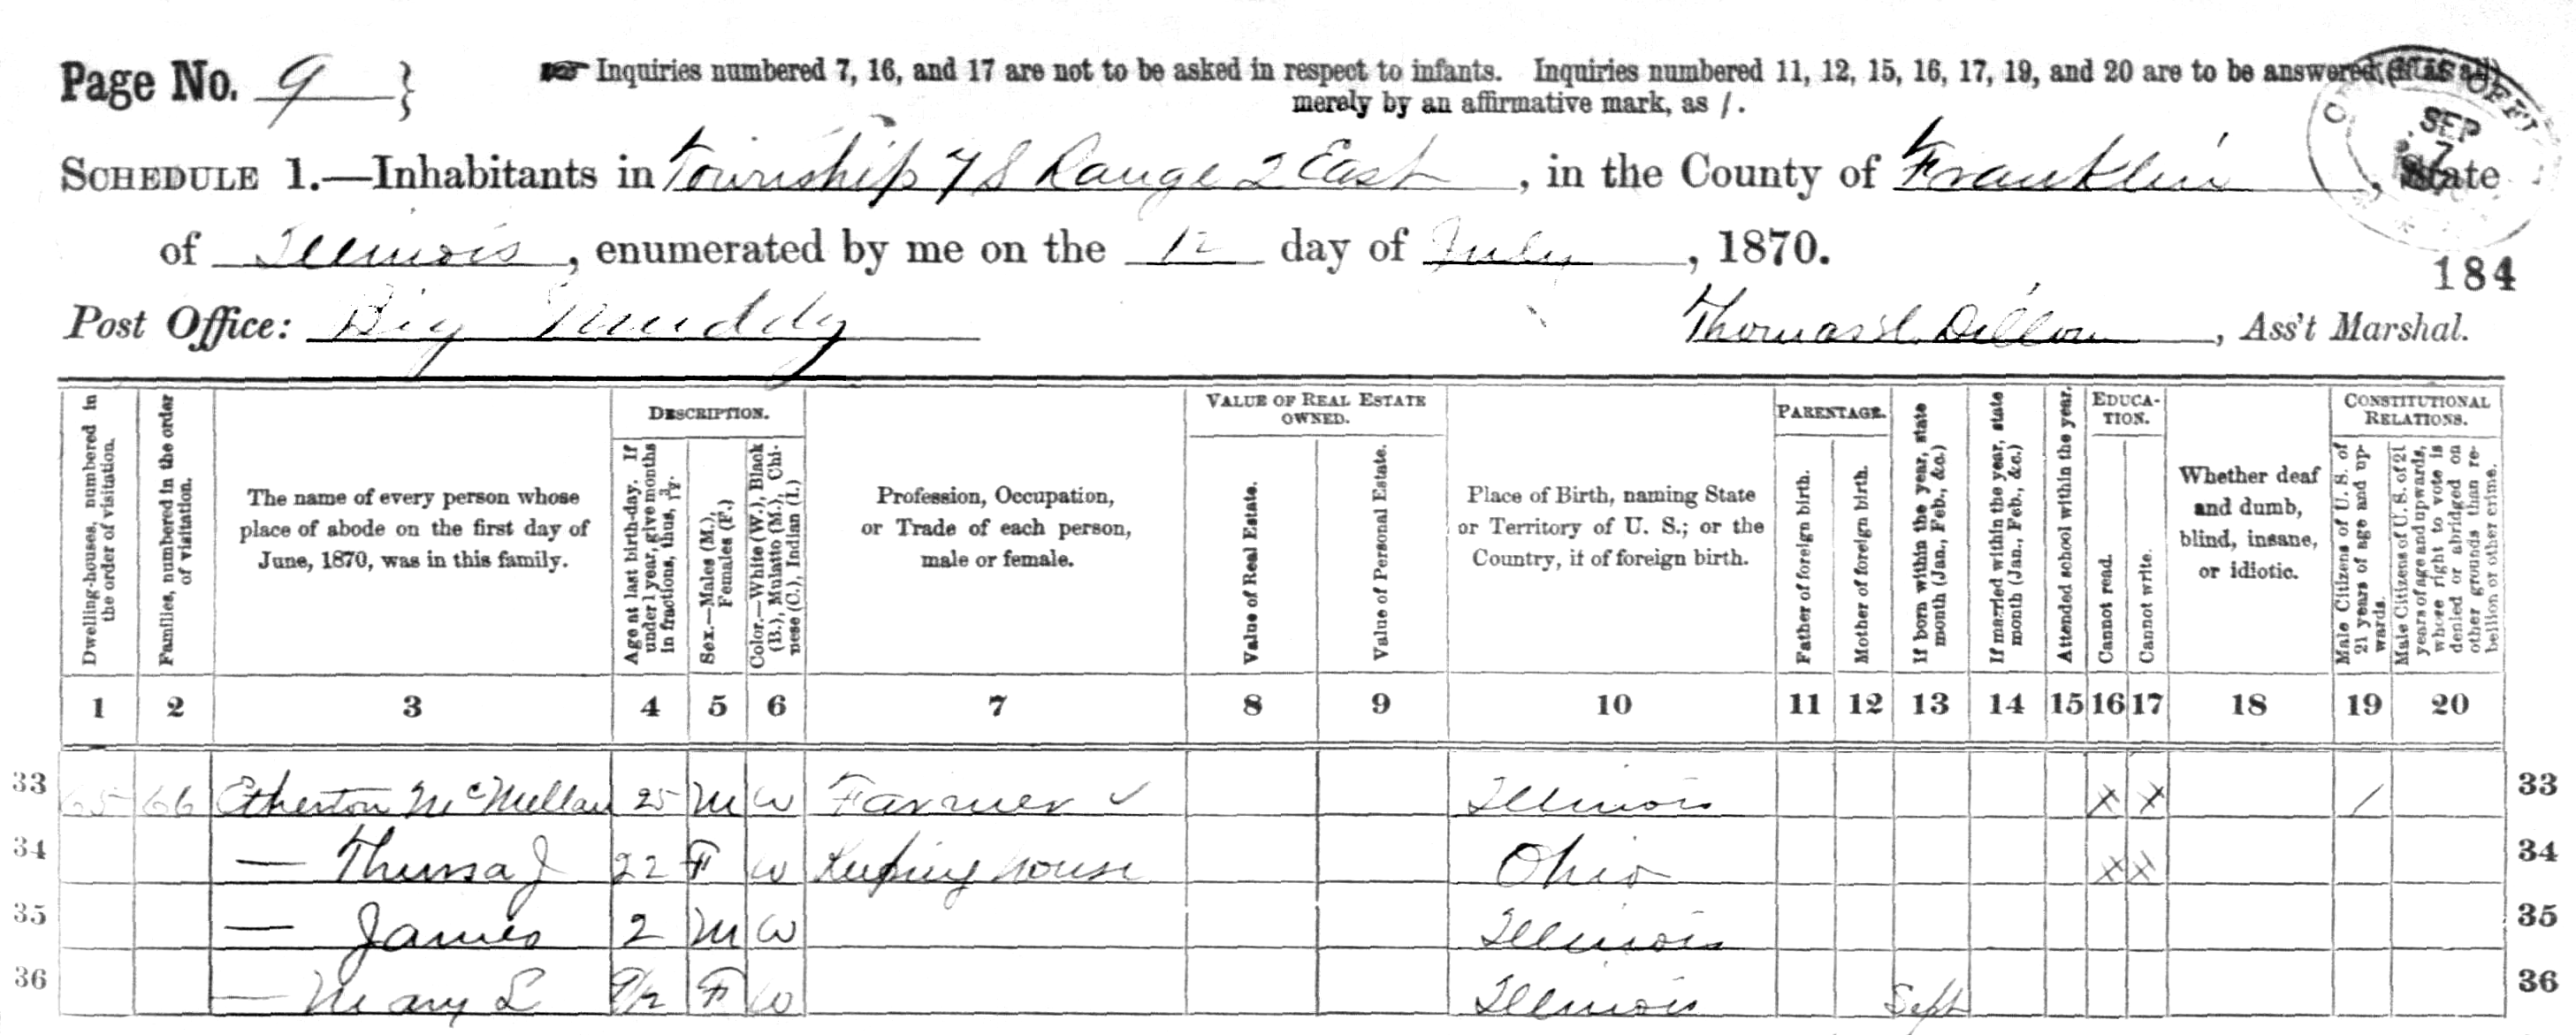 Page No. 9 } ☞ Inquiries numbered 7, 16, and 17 are not to be asked in respect to infants. Inquiries numbered 11, 12, 15, 16, 17, 19, and 20 are to be answered (if at all)
merely by an affirmative mark, as /.
SCHEDULE 1.—Inhabitants in Township 7 S Range 2 East, in the County of Franklin, State
of Illinois, enumerated by me on the 12 day of July, 1870.
184
Post Office: Big Muddy Dillon, Ass't Marshal.
Dwelling-houses, numbered in the order of visitation.
Families, numbered in the order of visitation.
The name of every person whose place of abode on the first day of June, 1870, was in this family.
DESCRIPTION.
Age at last birth-day. If under 1 year, give months in fractions, thus, 3/12.
Sex.—Males (M.), Females (F.)
Color.—White (W.), Black (B.), Mulatto (M.), Chinese (C.), Indian (I.)
Profession, Occupation, or Trade of each person, male or female.
VALUE OF REAL ESTATE OWNED.
Value of Real Estate.
Value of Personal Estate.
Place of Birth, naming State or Territory of U. S.; or the Country, if of foreign birth.
PARENTAGE.
Father of foreign birth.
Mother of foreign birth.
If born within the year, state month (Jan., Feb., &c.)
If married within the year, state month (Jan., Feb., &c.)
Attended school within the year.
EDUCATION.
Cannot read.
Cannot write.
Whether deaf and dumb, blind, insane, or idiotic.
CONSTITUTIONAL RELATIONS.
Male Citizens of U. S. of 21 years of age and upwards.
Male Citizens of U. S. of 21 years of age and upwards, where right to vote is denied or abridged on other grounds than rebellion or other crime.
1 2 3 4 5 6 7 8 9 10 11 12 13 14 15 16 17 18 19 20
33 65 66 Etherton McMellan 25 M W Farmer ✓ Illinois X X / 33
34 — J 22 F W Keeping house Ohio X X 34
35 — James 2 M W Illinois 35
36 — Mary L 9/12 F W Illinois Sept 36